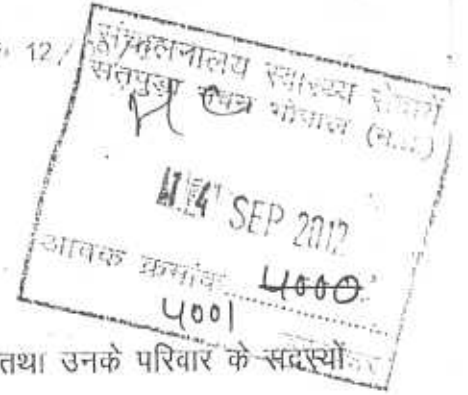 12/
संचालनालय स्वास्थ्य सेवायें
सतपुड़ा भवन भोपाल (म.प्र.)
SEP 2012
आवक क्रमांक 4000
4001
तथा उनके परिवार के सदस्यों